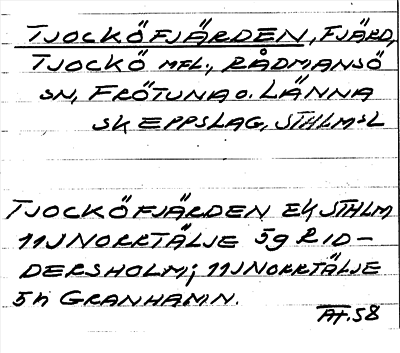 TJOCKÖFJÄRDEN, FJÄRD,
TJOCKÖ MFL., RÅDMANSÖ
SN, FRÖTUNA O. LÄNNA
SKEPPSLAG, STHLMSL
TJOCKÖFJÄRDEN EK STHLM
11J NORRTÄLJE 5g RID-
DERSHOLM; 11J NORRTÄLJE
5h GRANHAMN.
AH.58